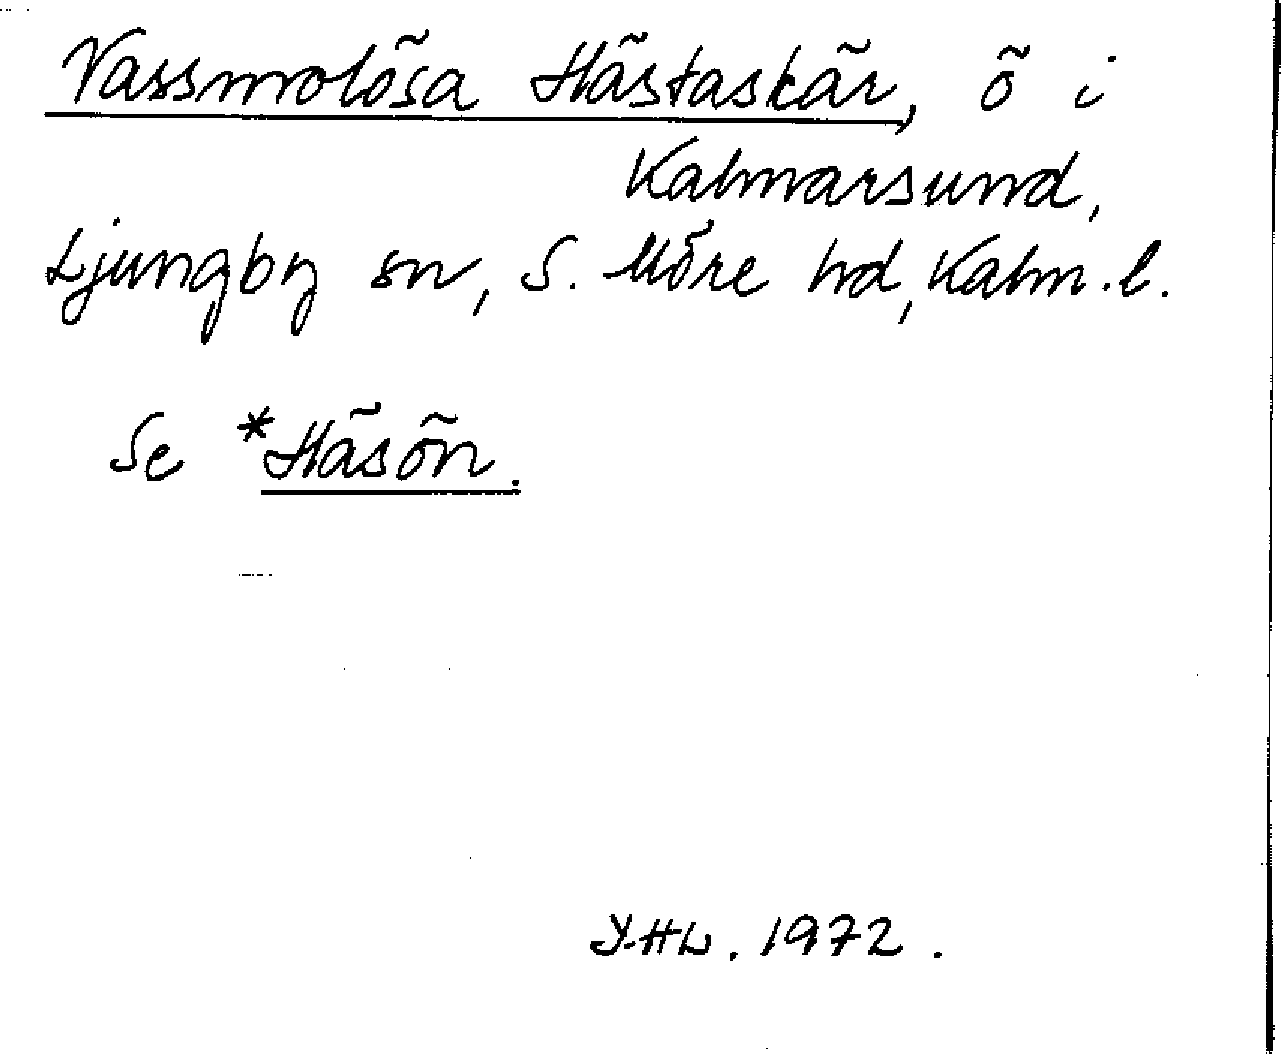 Vassmolösa Hästaskär, ö i
Kalmarsund,
Ljungby sn, S. Möre hd, Kalm. l.
Se *Häsön.
1972.